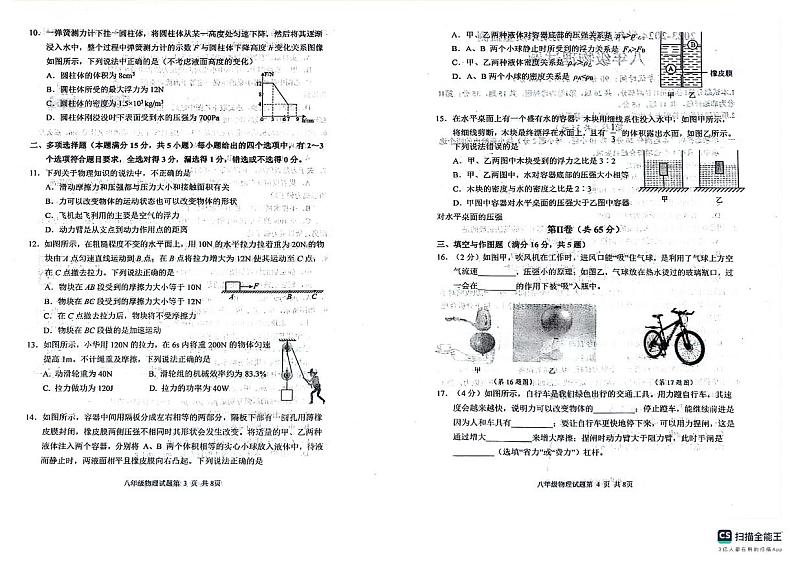 10. 一弹簧测力计下挂一圆柱体，将圆柱体从某一高度处匀速下降，然后将其逐渐
浸入水中，整个过程中弹簧测力计的示数 F 与圆柱体下降高度 h 变化关系图像
如图所示，下列说法中正确的是（不考虑液面高度的变化）
A. 圆柱体的体积为 8cm³
B. 圆柱体所受的最大浮力为 12N
C. 圆柱体的密度为 1.5×10³ kg/m³
D. 圆柱体刚浸没时下表面受到水的压强为 700Pa
F/N
12
4
0 3 6 7 9 h/cm
二、多项选择题（本题满分 15 分，共 5 小题）每小题给出的四个选项中，有 2～3
个选项符合题目要求，全选对得 3 分，漏选得 1 分，错选或不选得 0 分。
11. 下列关于物理知识的说法中，不正确的是
A. 滑动摩擦力和压强都与压力大小和接触面积有关
B. 力可以改变物体的运动状态也可以改变物体的形状
C. 飞机起飞利用的主要是空气的浮力
D. 动力臂是从支点到动力作用点的距离
12. 如图所示，在粗糙程度不变的水平面上，用 10N 的水平拉力拉着重为 20N 的物
块由 A 点匀速直线运动到 B 点；在 B 点将拉力增大为 12N 使其运动至 C 点；
在 C 点撤去拉力。下列说法正确的是
A. 物块在 AB 段受到的摩擦力大小等于 10N
B. 物块在 BC 段受到的摩擦力大小等于 12N
C. 在 C 点撤去拉力后，物块将不受摩擦力
D. 物块在 BC 段做的是加速运动
F
A B C
13. 如图所示，小华用 120N 的拉力，在 6s 内将重 200N 的物体匀速
提高 1m，不计绳重及摩擦，下列说法正确的是
A. 动滑轮重为 40N B. 滑轮组的机械效率约为 83.3%
C. 拉力做功为 120J D. 拉力的功率为 40W
14. 如图所示，容器中间用隔板分成左右相等的两部分，隔板下部有一圆孔用薄橡
皮膜封闭，橡皮膜两侧压强不相同时其形状会发生改变。将适量的甲、乙两种
液体注入两个容器，分别将 A、B 两个体积相等的实心小球放入液体中，待液
面静止时，两液面相平且橡皮膜向右凸起。下列说法正确的是
八年级物理试题第 3 页 共 8页
A. 甲、乙两种液体对容器底部的压强关系是 p甲<p乙
B. A、B 两个小球静止时所受到的浮力关系是 FA>FB
C. 甲、乙两种液体密度关系是 ρ甲>ρ乙
D. A、B 两个小球的密度关系是 ρA<ρB
B
A
橡皮膜
甲 乙
15. 在水平桌面上有一个盛有水的容器，木块用细线系住没入水中，如图甲所示，
将细线剪断，木块最终漂浮在水面上，且有 1/3 的体积露出水面，如图乙所示。
下列说法错误的是
A. 甲、乙两图中木块受到的浮力之比是 3：2
B. 甲、乙两图中，水对容器底部的压强大小相等
C. 木块的密度与水的密度之比是 2：3
D. 甲图中容器对水平桌面的压强大于乙图中容器
对水平桌面的压强
甲 乙
第II卷（共 65 分）
三、填空与作图题（满分 16 分，共 5 题）
16. （2 分）如图甲，吹风机在工作时，进风口能“吸”住气球，是利用了气球上方空
气流速________，压强小的原理；如图乙，气球放在热水烫过的玻璃瓶口，过
一会在________的作用下被“吸”入瓶中。
甲 乙
（第 16 题图） （第 17 题图）
17. （4 分）如图所示，自行车是我们绿色出行的交通工具，用力蹬自行车，其速
度会越来越快，说明力可以改变物体的________；停止蹬车，能继续前进是
因为人和车具有________；要让自行车更快地停下来，可以用力捏闸，这是
通过增大________来增大摩擦；捏闸时动力臂大于阻力臂，此时闸是
________（选填“省力”或“费力”）杠杆。
八年级物理试题第 4 页 共 8页
CS 扫描全能王
3亿人都在用的扫描App